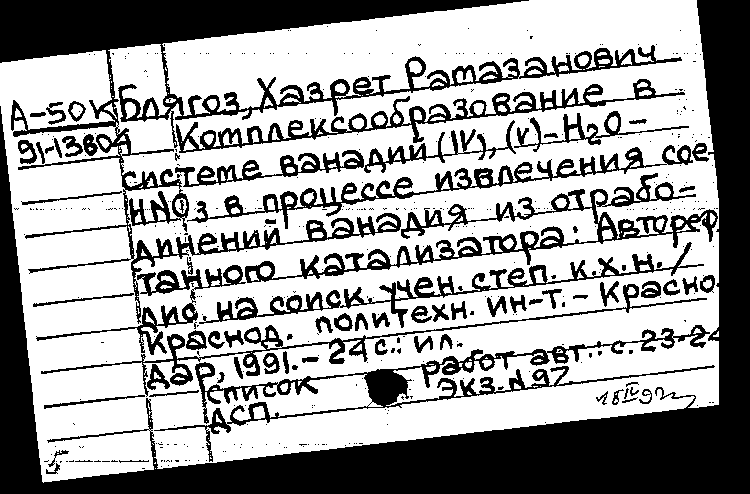 А-50К Блягоз, Хазрет Рамазанович
91-13604 Комплексообразование в
системе ванадий (IV), (V)-H2O-
HNO3 в процессе извлечения сое-
динений ванадия из отрабо-
танного катализатора: Автореф.
дис. на соиск. учен. степ. к.х.н. /
Краснод. политехн. ин-т. - Красно-
дар, 1991. - 24 с.: ил.
Список работ авт.: с. 23-24
ДСП. экз. N 97
18 IV 92г
5